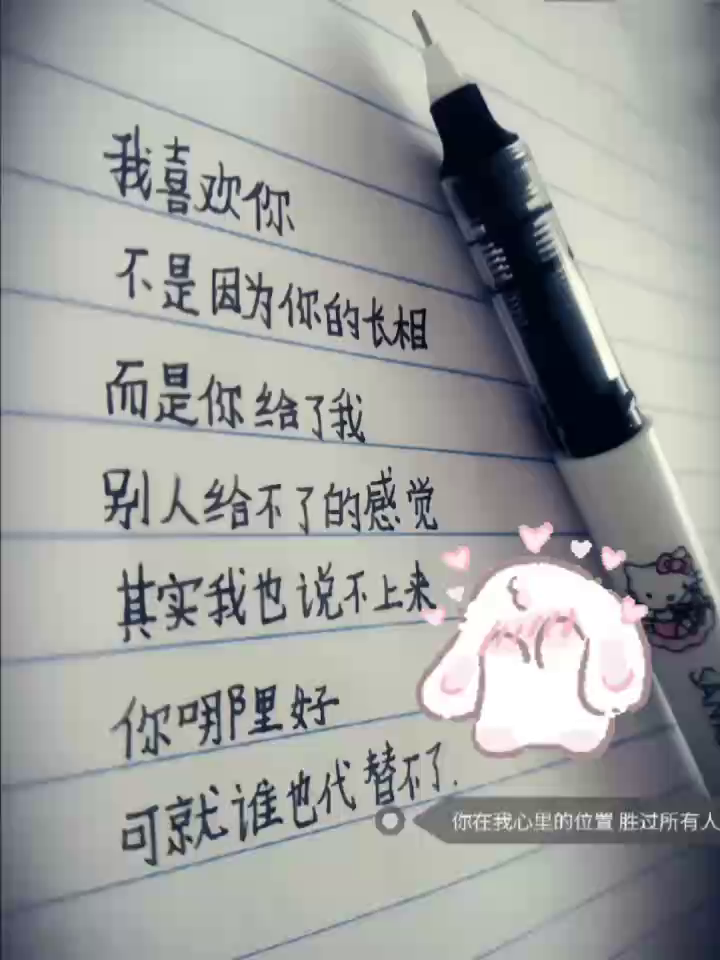 我喜欢你
不是因为你的长相
而是你给了我
别人给不了的感觉
其实我也说不上来
你哪里好
可就谁也代替不了.
你在我心里的位置 胜过所有人